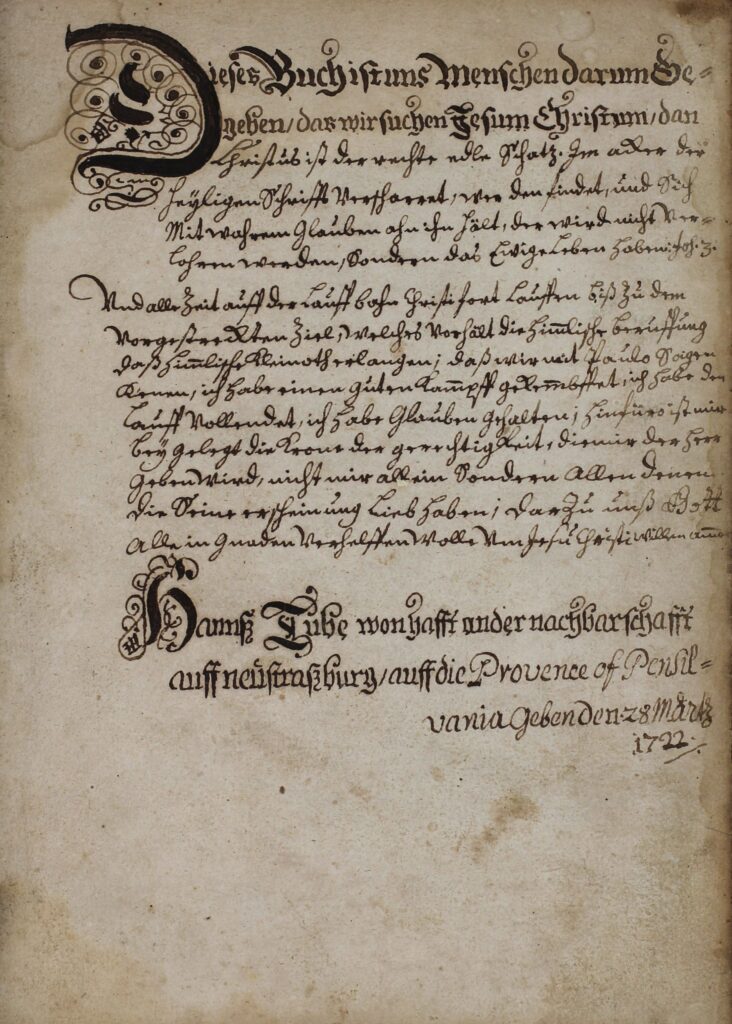 Dieses Buch ist uns Menschen darum Ge=
geben / das wir suchen Jesum Christum / dan
Christus ist der rechte edle Schatz. Im acker der
Heyligen Schrifft Verscharret, wer den findet, und Sich
Mit wahrem Glauben ahn ihn hält, der wird nicht Ver=
lohren werden, Sondern das Ewige Leben haben: Joh. 3.
Und alle Zeit auff der Lauff bahn Christi fort Lauffen biß Zu dem
Vorgestreckten Ziel, welches Vorhält die himlische beruffung
daß himlische Kleinoth erlangen; daß wir mit Paulo Sagen
Kenen, ich habe einen guten Kampff gekembffet, ich habe den
Lauff Vollendet, ich habe Glauben gehalten; hinfüro ist mir
bey gelegt die Krone der gerechtigkeit, die mir der Herr
geben wird, nicht mir allein Sondern Allen denen
die Seine erscheinung Lieb haben; dar Zu unß Gott
Alle in Gnaden Verhelffen wolle Um Jesu Christi willen amen
Hannß Tube wonhafft in der nachbarschafft
auff neüstraßburg / auff die Provence of Pensil=
vania Geben den 28 Martz
1722.